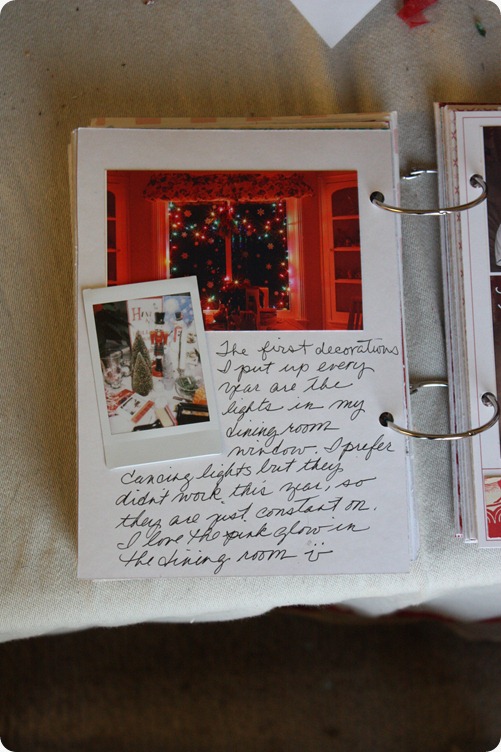 The first decorations
I put up every
year are the
lights in my
dining room
window. I prefer
dancing lights but they
didn't work this year, so
they are just constant on.
I love the pink glow in
the dining room